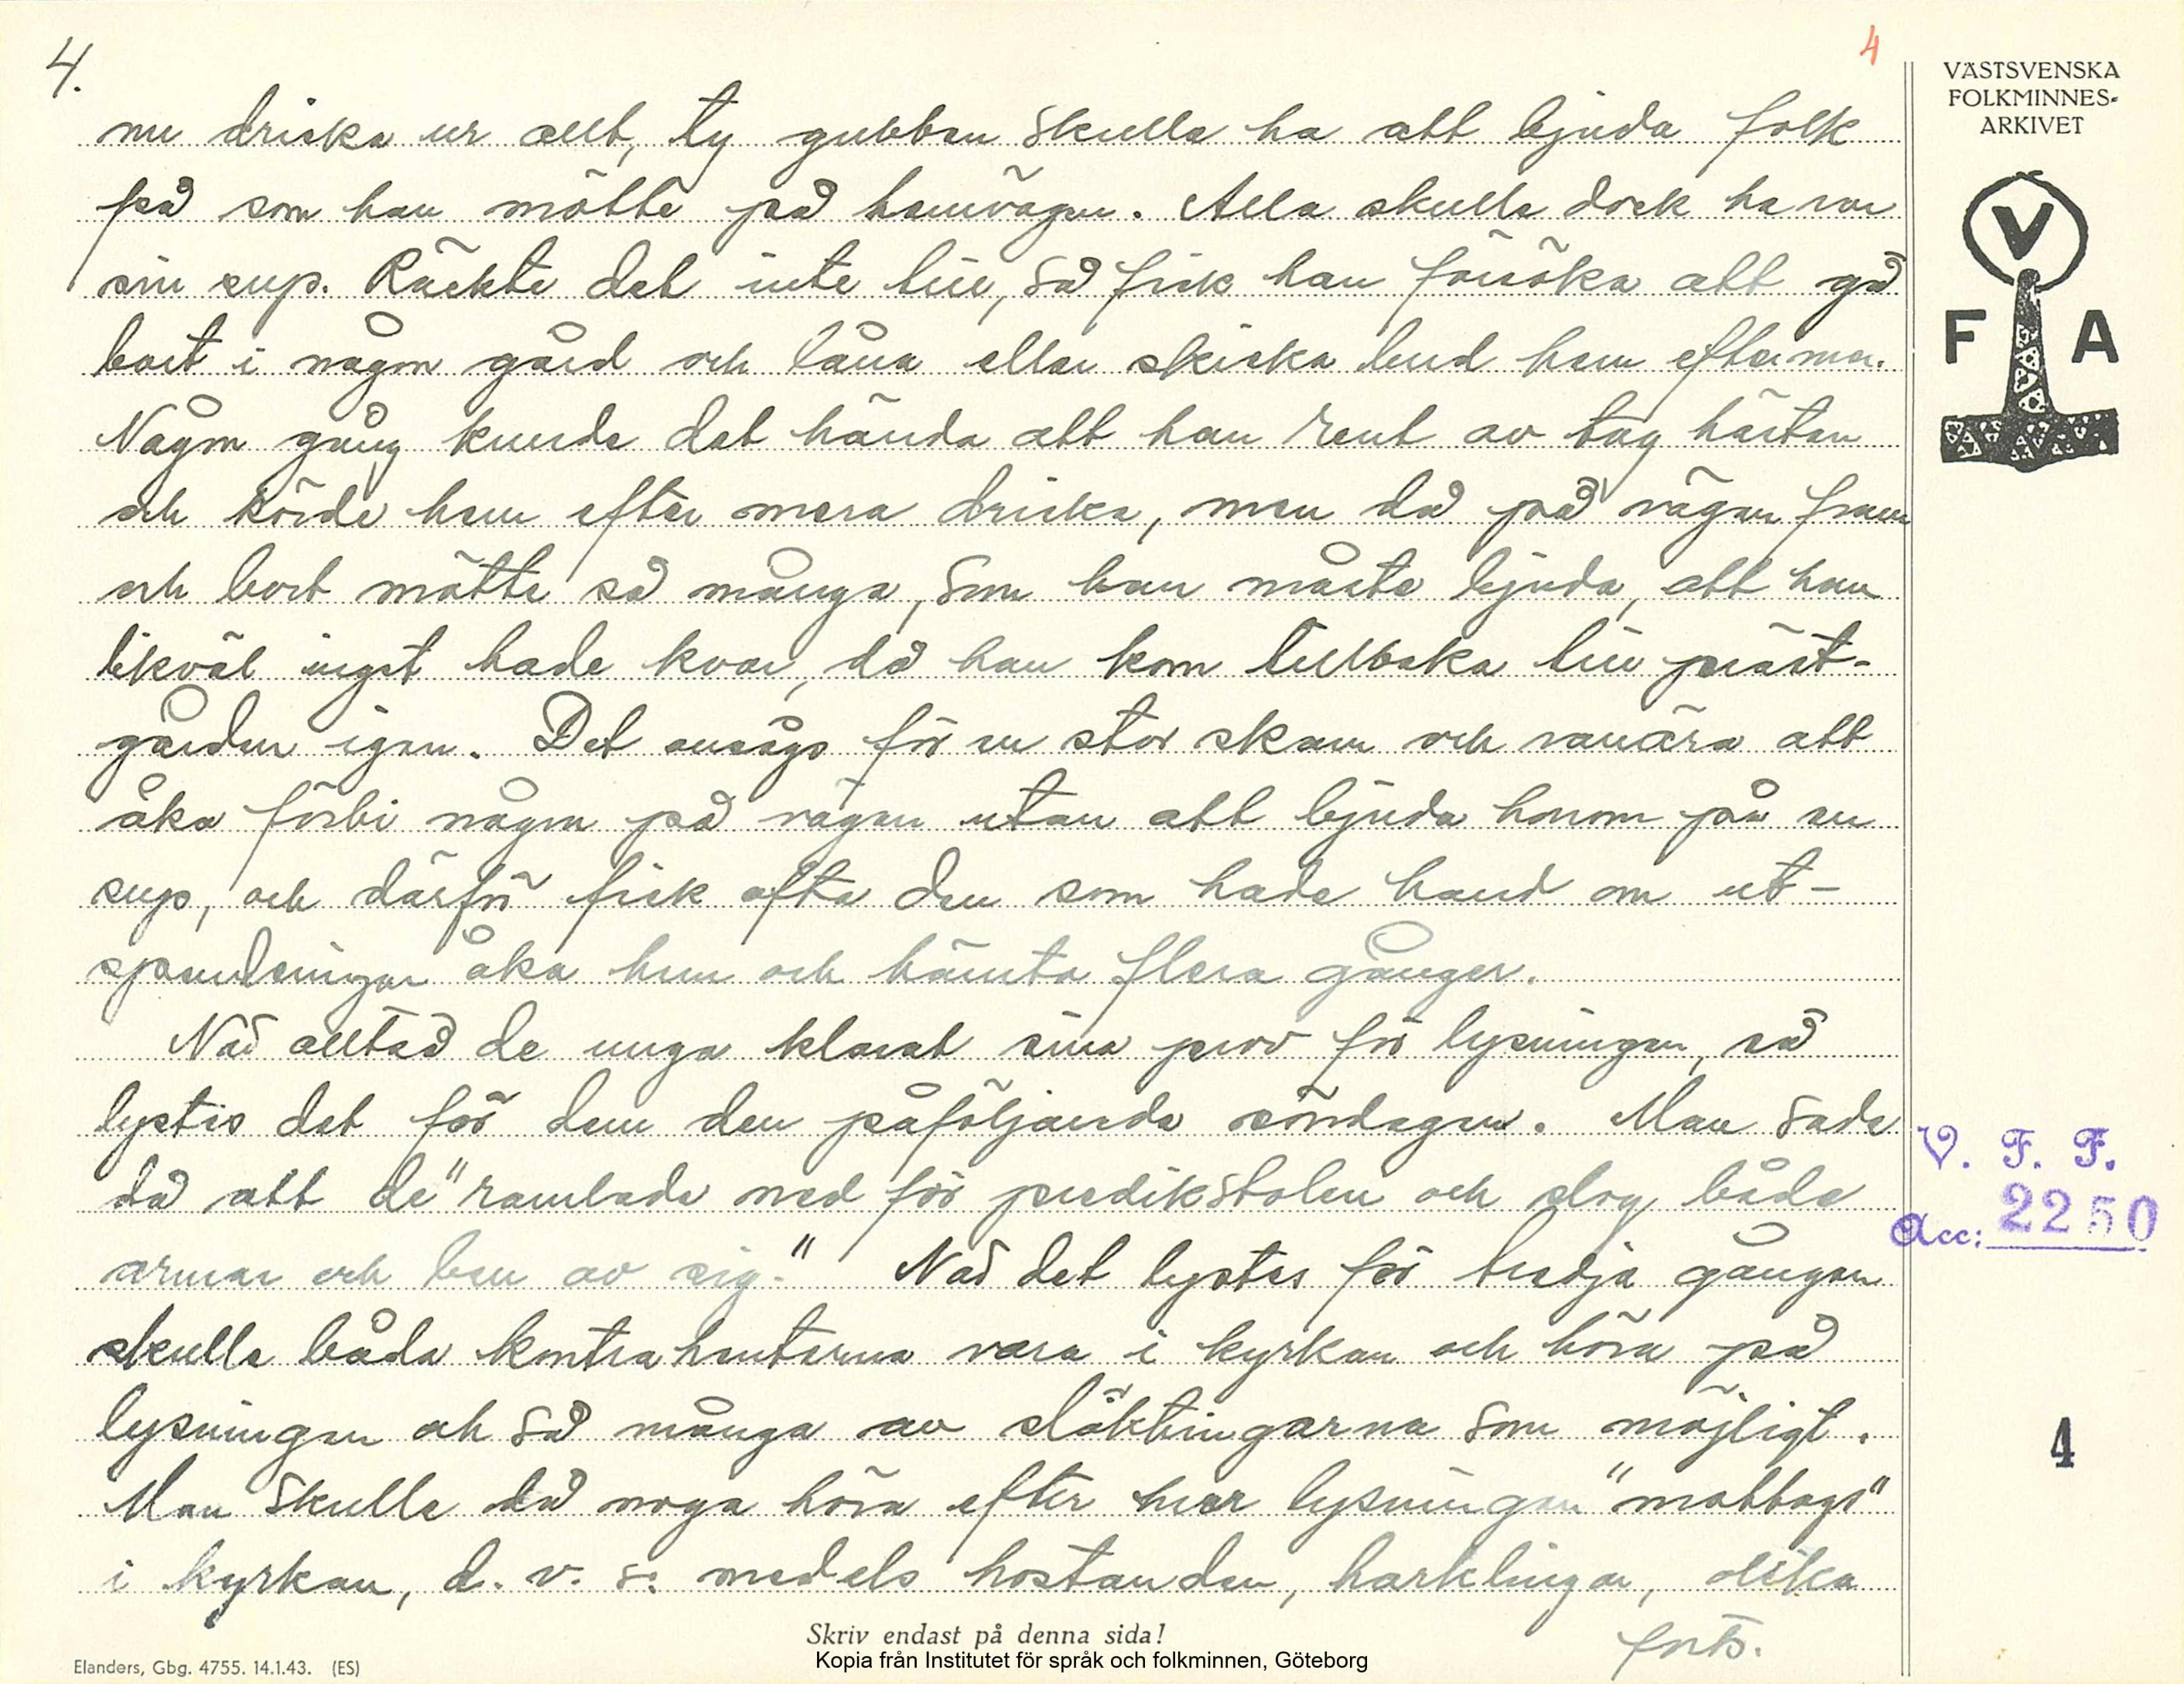 4.
4
VÄSTSVENSKA
FOLKMINNES-
ARKIVET
V
F A
nu dricka ur allt, ty gubben skulle ha att bjuda folk
på som han mötte på hemvägen. Alla skulle dock ha var
sin sup. Räckte det inte till, så fick han försöka att gå
bort i någon gård och låna eller skicka bud hem efter mer.
Någon gång kunde det hända att han rent av tog hästen
och körde hem efter mera dricka, men då på vägen fram
och bort mötte så många, som han måste bjuda, att han
likväl inget hade kvar, då han kom tillbaka till präst-
gården igen. Det ansågs för en stor skam och vanära att
åka förbi någon på vägen utan att bjuda honom på en
sup, och därför fick ofta den som hade hand om ut-
spendningar åka hem och hämta flera gånger.
När alltså de unga klarat sina prov för lysningen, så
lystes det för dem den påföljande söndagen. Man sade
då att de "ramlade ned för predikstolen och slog både
armar och ben av sig." När det lystes för tredje gången
skulle båda kontrahenterna vara i kyrkan och höra på
lysningen och så många av släktingarna som möjligt.
Man skulle då noga höra efter hur lysningen "mottogs"
i kyrkan, d. v. s. medels hostanden, harklingar, olika
forts.
V. F. F.
Acc: 2250
4
Skriv endast på denna sida!
Kopia från Institutet för språk och folkminnen, Göteborg
Elanders, Gbg. 4755. 14.1.43. (ES)